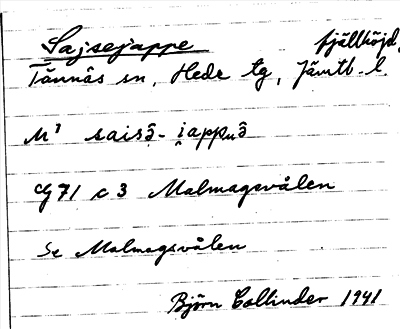 Sajsejappe fjällhöjd,
Tännäs sn, Hede tg, Jämtl. l.
M¹ saisə̑-i̯appuə̑
G 71 c 3 Malmagsvålen
Se Malmagsvålen
Björn Collinder 1941